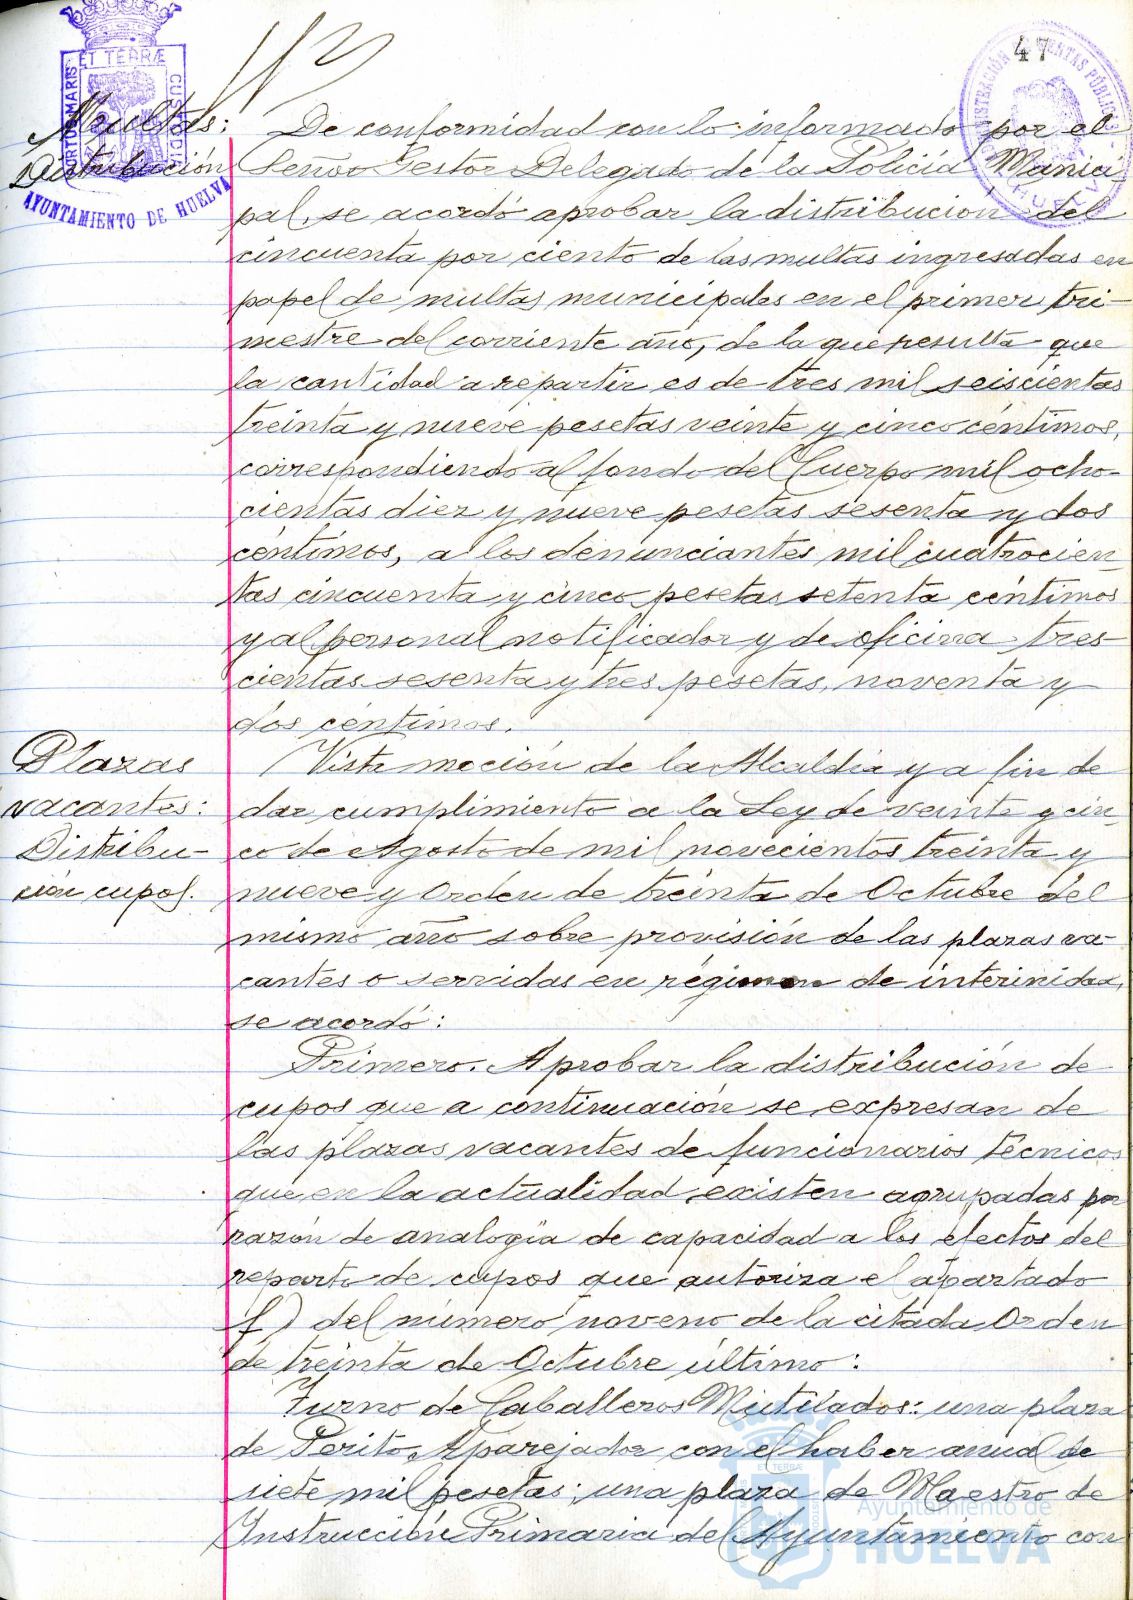 47
PORTUS MARIS ET TERRÆ CUSTODIA
AYUNTAMIENTO DE HUELVA
Multas:
Distribución
De conformidad con lo informado por el
Señor Gestor Delegado de la Policía Munici-
pal, se acordó aprobar la distribucion del
cincuenta por ciento de las multas ingresadas en
papel de multas municipales en el primer tri-
mestre del corriente año, de la que resulta que
la cantidad a repartir es de tres mil seiscientas
treinta y nueve pesetas veinte y cinco céntimos,
correspondiendo al fondo del Cuerpo mil ocho-
cientas diez y nueve pesetas sesenta y dos
céntimos, a los denunciantes mil cuatrocien-
tas cincuenta y cinco pesetas setenta céntimos
y al personal notificador y de oficina tres-
cientas sesenta y tres pesetas, noventa y
dos céntimos.
Plazas
vacantes:
Distribu-
ción cupos.
Vista moción de la Alcaldía y a fin de
dar cumplimiento a la Ley de veinte y cin-
co de Agosto de mil novecientos treinta y
nueve y Orden de treinta de Octubre del
mismo año sobre provisión de las plazas va-
cantes o servidas en régimen de interinidad,
se acordó:
Primero. Aprobar la distribución de
cupos que a continuación se expresan de
las plazas vacantes de funcionarios técnicos
que en la actualidad existen agrupadas por
razón de analogía de capacidad a los efectos del
reparto de cupos que autoriza el apartado
f) del número noveno de la citada Orden
de treinta de Octubre último:
Turno de Caballeros Mutilados: una plaza
de Perito Aparejador con el haber anual de
siete mil pesetas; una plaza de Maestro de
Instrucción Primaria del Ayuntamiento con
Ayuntamiento de
HUELVA